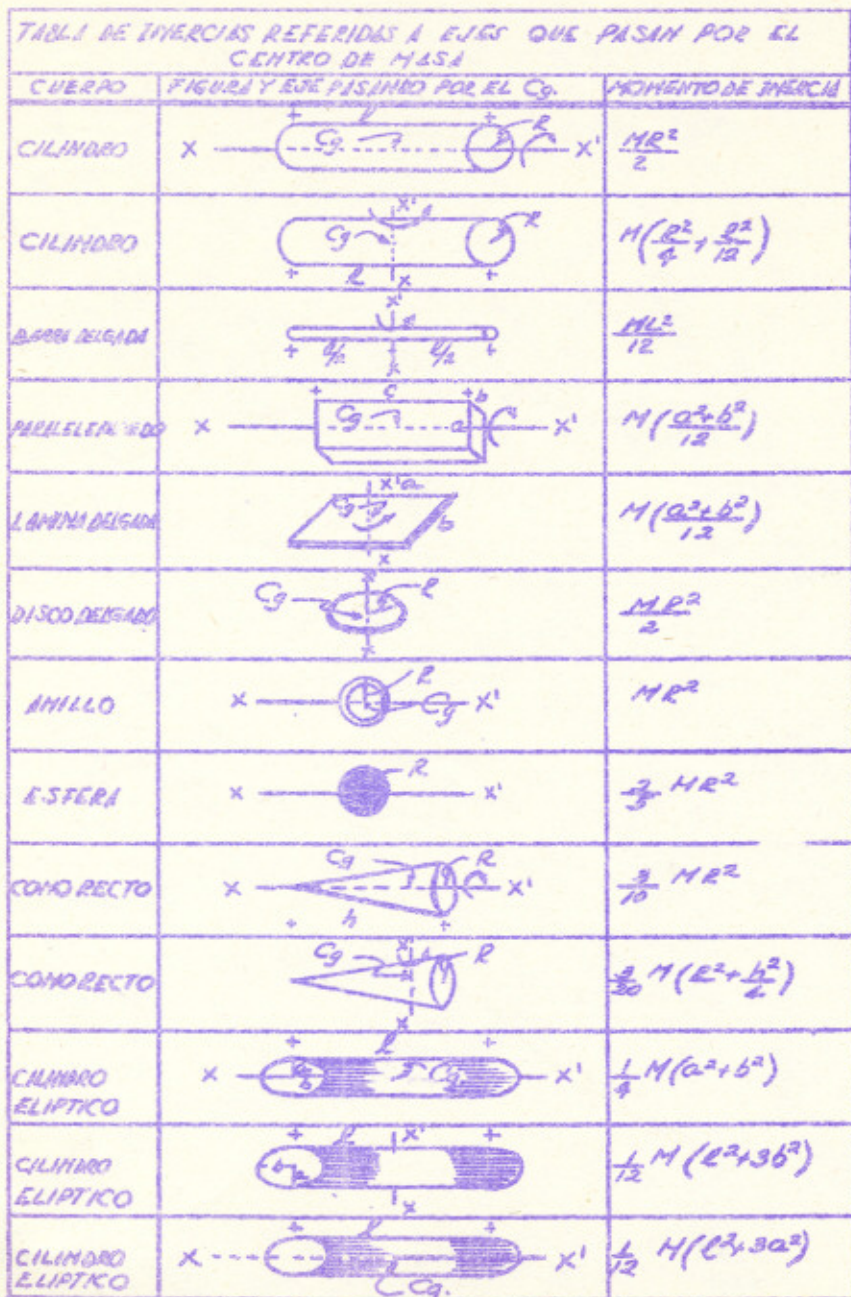 TABLA DE INERCIAS REFERIDAS A EJES QUE PASAN POR EL
CENTRO DE MASA
CUERPO FIGURA Y EJE PASANDO POR EL Cg. MOMENTO DE INERCIA
CILINDRO X Cg l R X' MR²/2
CILINDRO Cg X' R l X M(R²/4 + l²/12)
BARRA DELGADA X' l/2 X l/2 ML²/12
PARALELEPIPEDO X Cg c b a X' M(a²+b²/12)
LAMINA DELGADA X' a Cg b X M(a²+b²/12)
DISCO DELGADO Cg R X MR²/2
ANILLO X R Cg X' MR²
ESFERA X R X' 2/5 MR²
CONO RECTO X Cg R h X' 3/10 MR²
CONO RECTO Cg X' R X 3/20 M(R²+h²/4)
CILINDRO
ELIPTICO X l a b Cg. X' 1/4 M(a²+b²)
CILINDRO
ELIPTICO l X' b X 1/12 M(l²+3b²)
CILINDRO
ELIPTICO X l X' Cg. 1/12 M(l²+3a²)